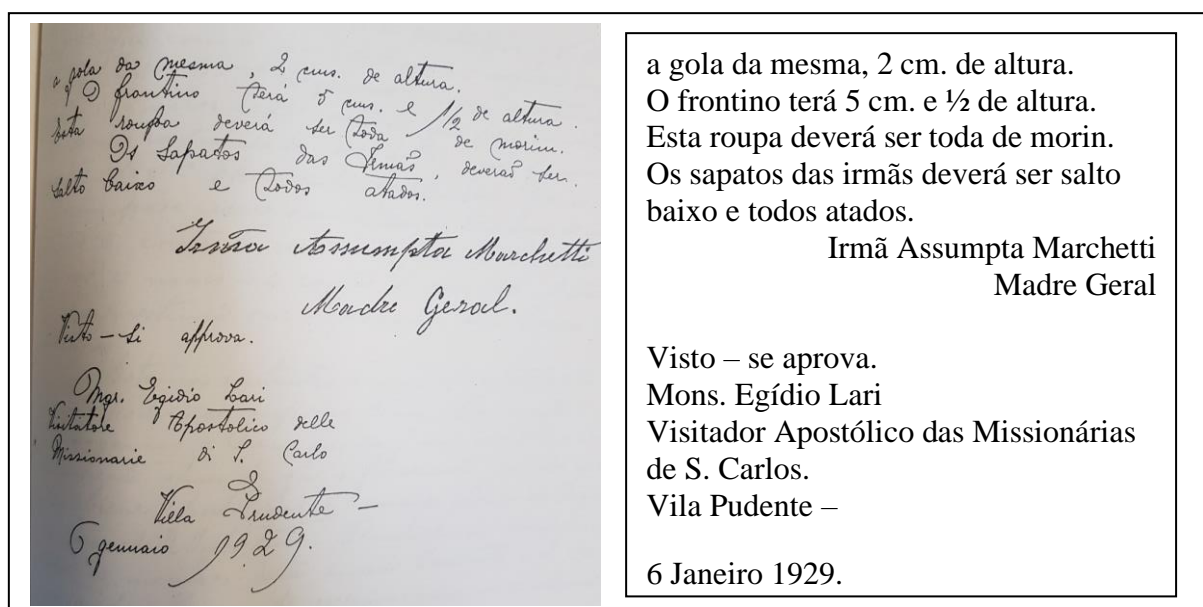 a gola da mesma, 2 cms. de altura.
O frontino terá 5 cms. e 1/2 de altura.
Esta roupa deverá ser toda de morim.
Os sapatos das Irmãs, deverão ser
salto baixo e todos atados.
Irmã Assumpta Marchetti
Madre Geral.
Visto – Si approva.
Mgr. Egidio Lari
Visitatore Apostolico delle
Missionarie di S. Carlo
Villa Prudente –
6 gennaio 1929.
a gola da mesma, 2 cm. de altura.
O frontino terá 5 cm. e ½ de altura.
Esta roupa deverá ser toda de morin.
Os sapatos das irmãs deverá ser salto
baixo e todos atados.
Irmã Assumpta Marchetti
Madre Geral
Visto – se aprova.
Mons. Egídio Lari
Visitador Apostólico das Missionárias
de S. Carlos.
Vila Pudente –
6 Janeiro 1929.